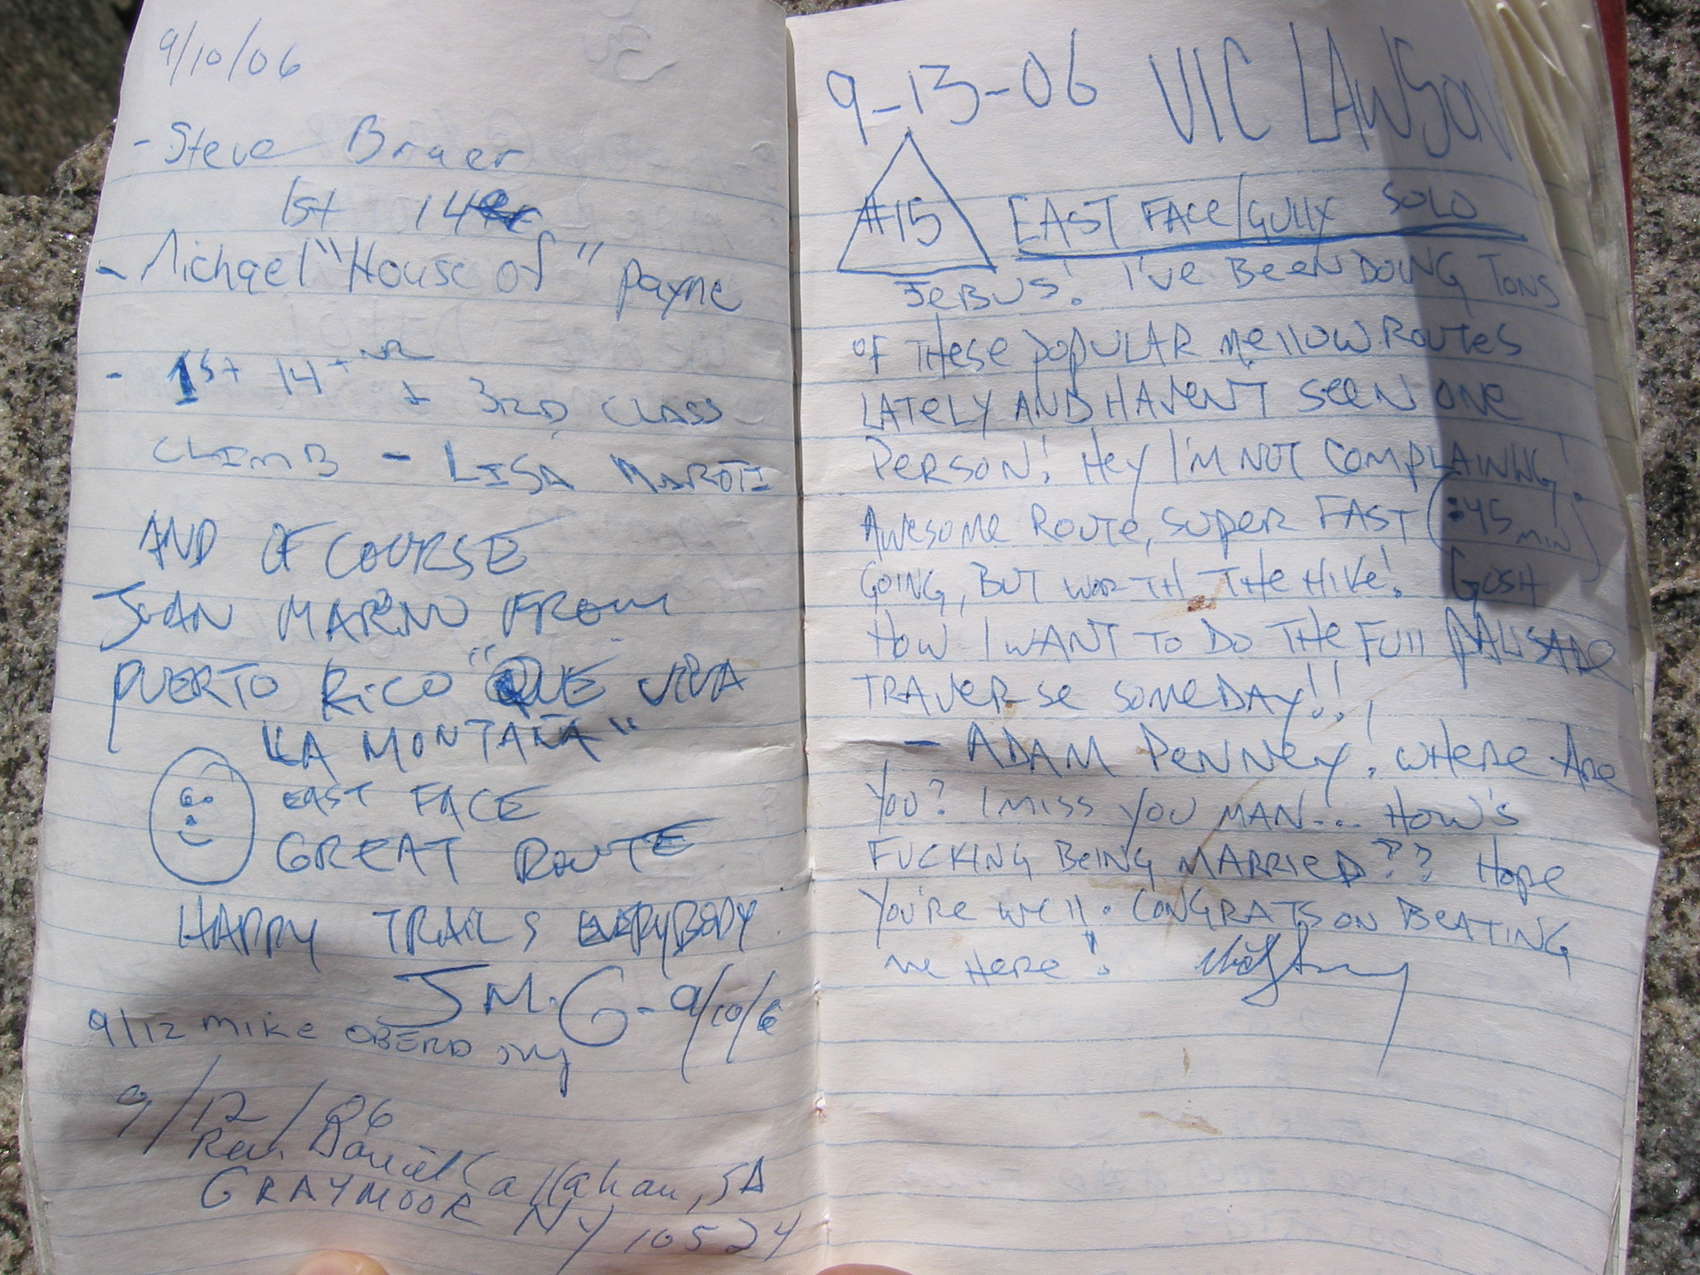 9/10/06
- Steve Braer
1st 14er
- Michael "House of" Payne
- 1st 14+ & 3RD CLASS
CLIMB - LISA MAROTI
AND OF COURSE
JUAN MARINO FROM
PUERTO RICO "QUE VIVA
LA MONTAÑA"
EAST FACE
GREAT ROUTE
HAPPY TRAILS EVERYBODY
J.M.G - 9/10/6
9/12 MIKE
9/12/06
Rev. Daniel Callahan, SA
GRAYMOOR NY 10524
9-13-06 VIC LAWSON
#15 EAST FACE/GULLY SOLO
JEBUS! I'VE BEEN DOING TONS
OF THESE POPULAR MELLOW ROUTES
LATELY AND HAVEN'T SEEN ONE
PERSON! HEY I'M NOT COMPLAINING!
AWESOME ROUTE, SUPER FAST (:45 MIN)
GOING, BUT WORTH THE HIKE! GOSH
HOW I WANT TO DO THE FULL PALISADE
TRAVERSE SOMEDAY!!!
- ADAM PENNEY! WHERE ARE
YOU? I MISS YOU MAN... HOW'S
FUCKING BEING MARRIED??? HOPE
YOU'RE WELL. CONGRATS ON BEATING
ME HERE!